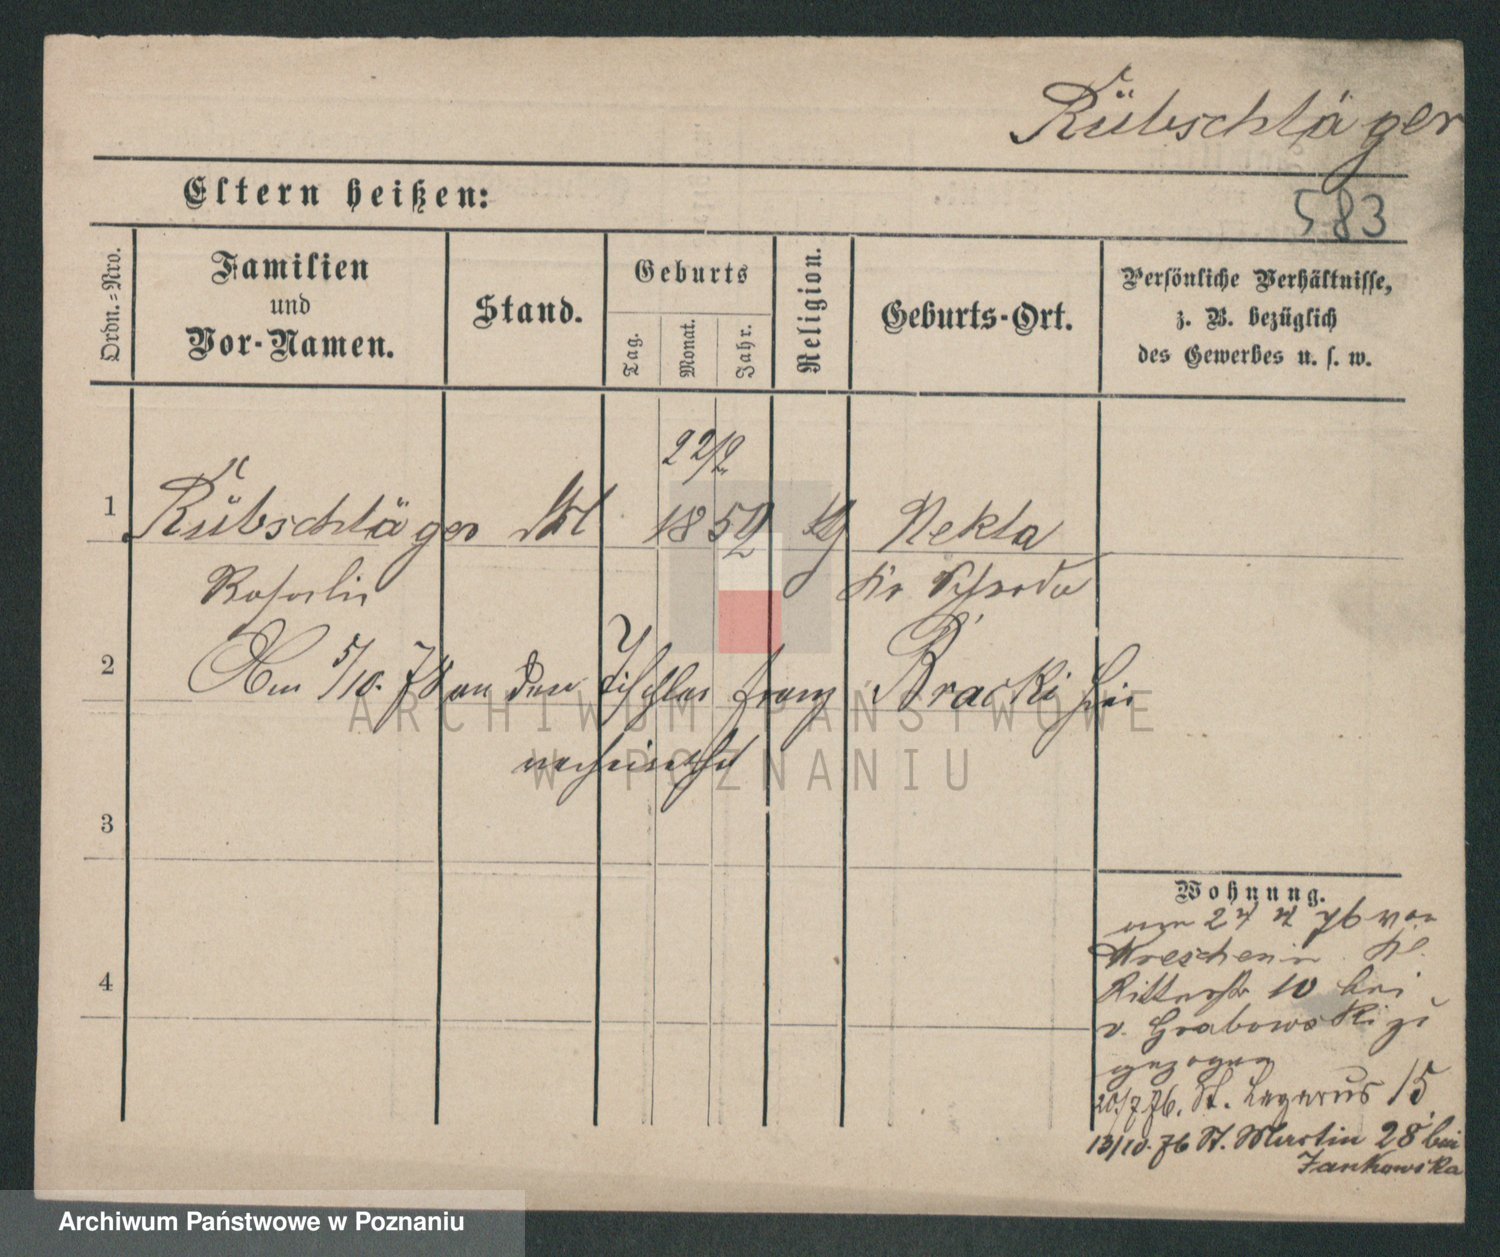 Rübschläger
Eltern heißen:
583
Ordn.=Nro.
Familien
und
Vor-Namen.
Stand.
Geburts
Tag.
Monat.
Jahr.
Religion.
Geburts-Ort.
Persönliche Verhältnisse,
z. B. bezüglich
des Gewerbes u. s. w.
22/2
1 Rübschläger 1859 Nekla
Rosalie Kr Schroda
2 Am 5/10. 78 an den Tischler Franz Bracki hier
verheirathet
3
4
Wohnung.
am 27 76 von
Kreschenin Kl.
Ritterstr 10 bei
v. Grabowski
gezogen
20/7 76. St. Lazarus 15
13/10. 76 St. Martin 28 bei
Jankowska
ARCHIWUM PAŃSTWOWE
W POZNANIU
Archiwum Państwowe w Poznaniu